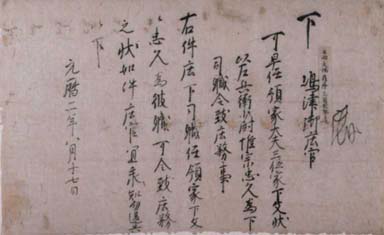 下　嶋津御庄官
可早任領家大夫三位家下文状
以左兵衛少尉惟宗忠久為下
司職令致庄務事
右件庄下司職任領家下文
以忠久為彼職可令致庄務
之状如件庄官宜承知勿違失
以下
元暦二年八月十七日